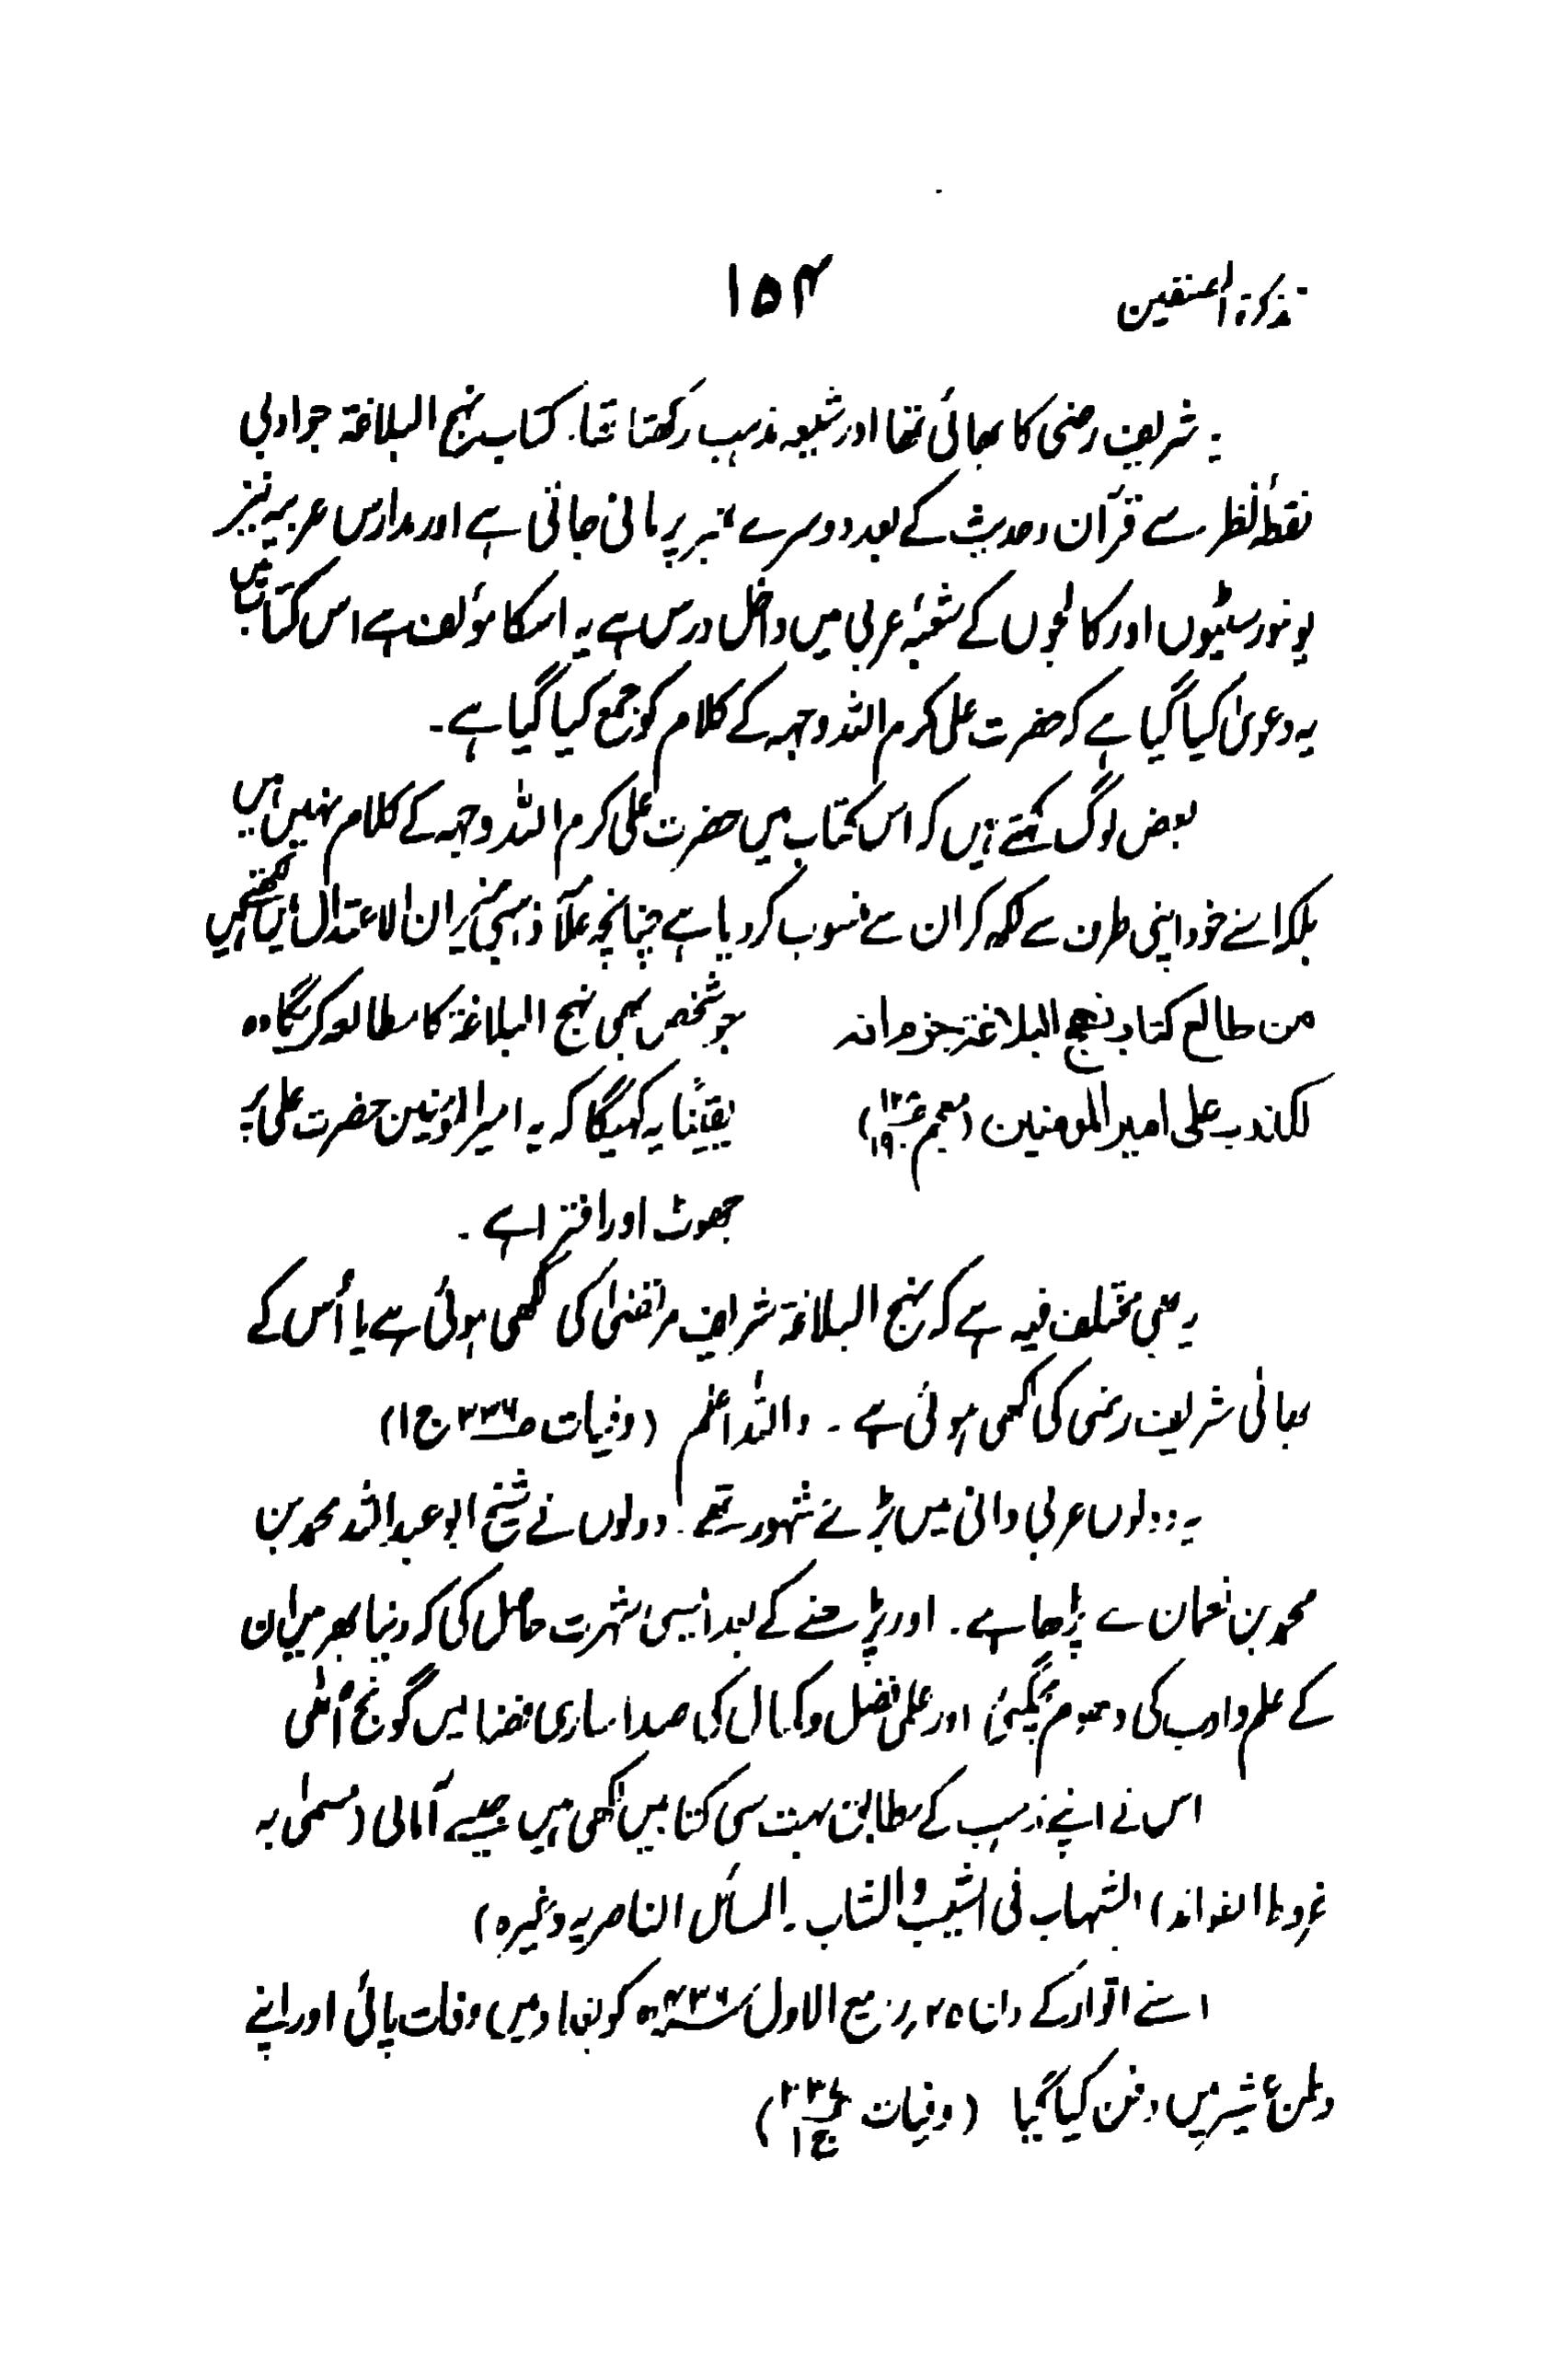 تذکرۃ المصنفین
۱۵۴
یہ شریف رضی کا بھائی تھا اور شیعہ مذہب رکھتا تھا. کتاب نہج البلاغۃ جو ادبی
نقطۂ نظر سے قرآن وحدیث کے بعد دوسرے نمبر پر مانی جاتی ہے اور مدارس عربیہ نیز
یونورسٹیوں اور کالجوں کے شعبۂ عربی میں داخل درس ہے یہ اسکا مؤلف ہے اس کتاب میں
یہ دعویٰ کیا گیا ہے کہ حضرت علی کرم اللہ وجہہ کے کلام کو جمع کیا گیا ہے۔
بعض لوگ کہتے ہیں کہ اس کتاب میں حضرت علی کرم اللہ وجہہ کے کلام نہیں ہیں
بلکہ اسنے خود اپنی طرف سے لکھ کر ان سے منسوب کردیا ہے چنانچہ علامہ ذہبی میزان الاعتدال میں لکھتے ہیں
من طالع کتاب نھج البلاغۃ جزم انہ
جو شخص بھی نہج البلاغۃ کا مطالعہ کریگا وہ
لکذب علی امیر المومنین (معجم
یقینًا یہ کہیگا کہ یہ امیر المؤمنین حضرت علی پر
جھوٹ اور افترا ہے ۔
یہ بھی مختلف فیہ ہے کہ نہج البلاغۃ شریف مرتضیٰ کی لکھی ہوئی ہے یا اُس کے
بھائی شریف رضی کی لکھی ہوئی ہے ۔ واللہ اعلم (وفیات ص۳۳۶ ج۱)
یہ دونوں عربی دانی میں بڑے مشہور تھے. دونوں نے شیخ ابو عبداللہ محمد بن
محمد بن نعمان سے پڑھا ہے. اور پڑھنے کے بعد ایسی شہرت حاصل کی کہ دنیا بھر میں ان
کے علم وادب کی دھوم مچگئی اور علمی فضل وکمال کی صدا ساری فضا میں گونج اُٹھی
اس نے اپنے مذہب کے مطابق بہت سی کتابیں لکھی ہیں جیسے آمالی (مسمیٰ بہ
غرود الفوائد) الشہاب فی الشیب والشاب ۔ المسائل الناصریہ وغیرہ)
اسنے اتوار کے دن ۲۵ ربیع الاول ۴۳۶ھ کو بغداد میں وفات پائی اور اپنے
دفن کیا گیا (وفیات ص۳۳۶ ج۱)